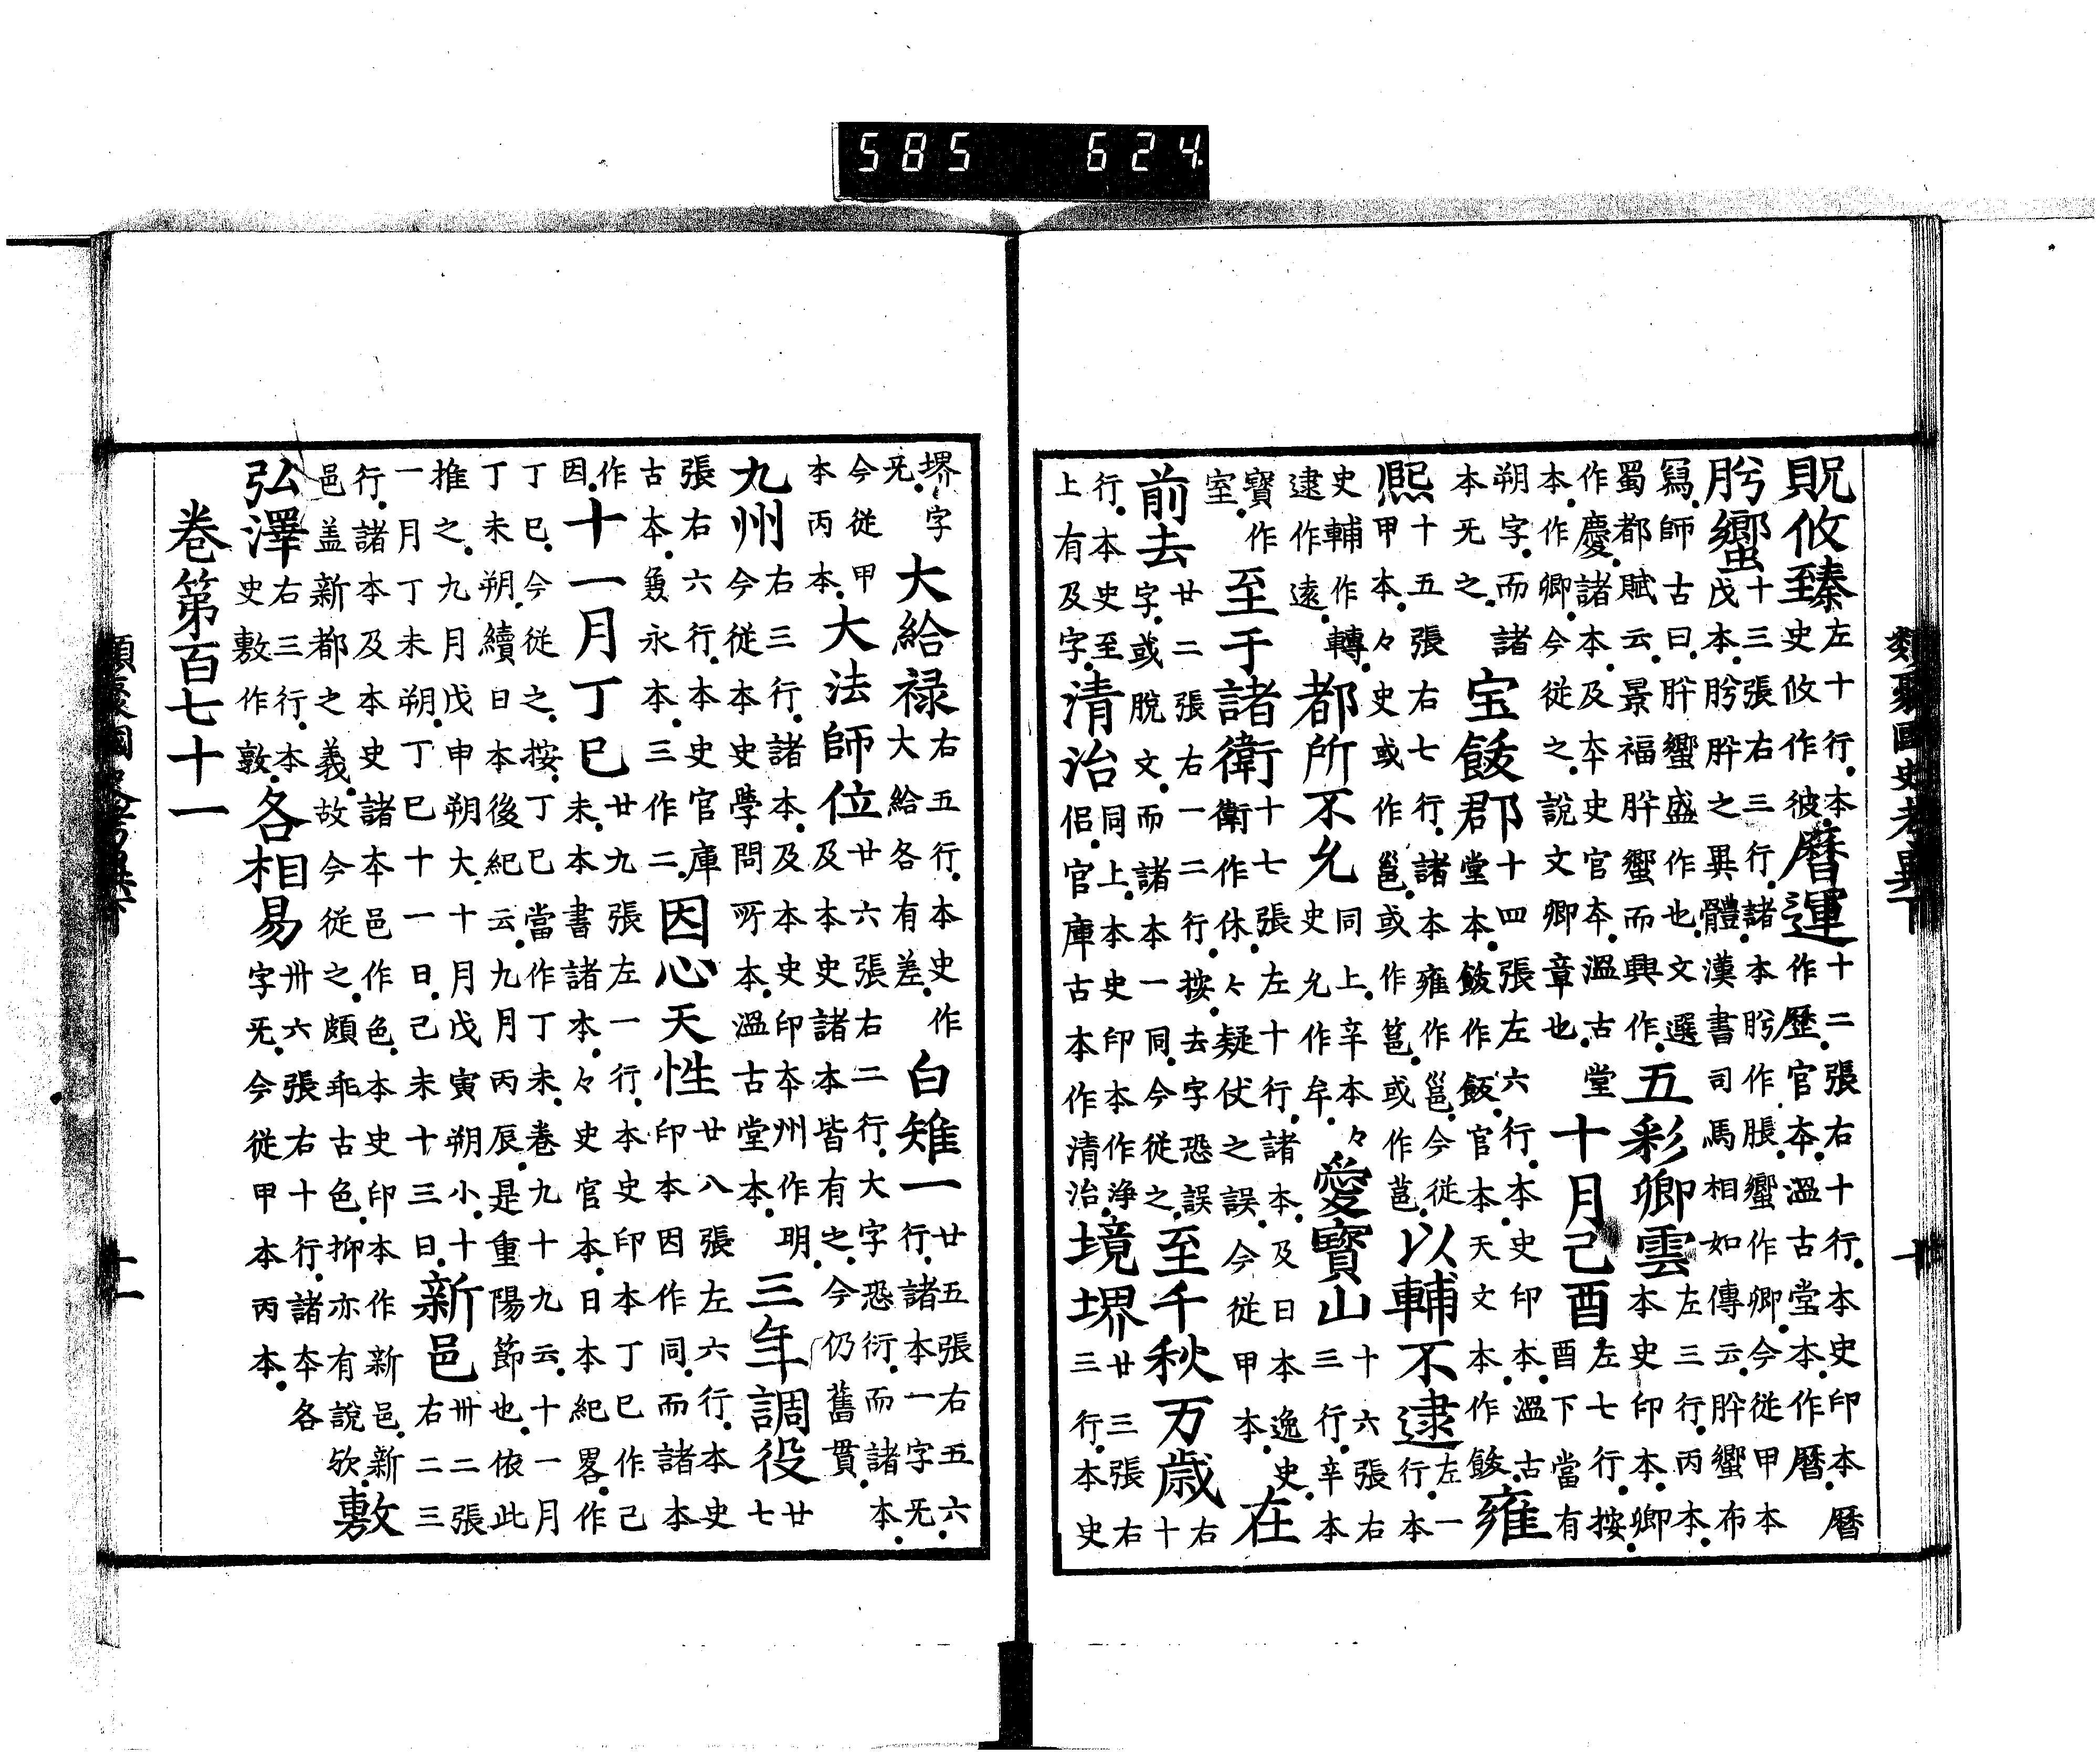 類聚國史考異下 十
貺攸臻左十行.本史攸作彼.曆運十二張右十行.本史印本曆作歷.官本.温古堂本.作曆.
肹蠁十三張右三行.諸本肹作脹.蠁作卿.今從甲本戊本.肹肸之異體.漢書司馬相如傳云.肸蠁布
寫.師古曰.肸蠁盛作也.文選蜀都賦云.景福肸蠁而興作.五彩卿雲左三行.丙本.本史印本.卿
作慶.諸本及本史官本.温古堂本.作卿.今從之.說文卿章也.十月己酉左七行.按.酉下當有
朔字.而諸本旡之.宝飯郡十四張左六行.本史印本.温古堂本.飯作飯.官本天文本.作飯.雍
熈十五張右七行.諸本雍作邕.今從甲本.々史或作邕.或作邕.或作邕.以輔不逮左一行.本
史輔作轉.逮作遠.都所不允同上.辛本々史允作牟.愛寳山十六張右三行.辛本
寳作室.至于諸衛十七張左十行.諸本.及日本逸史.衛作休.々疑伏之誤.今從甲本.在
前去廿二張右一二行.按去字恐誤字.或脫文.而諸本一同.今從之.至千秋万歳右十
行.本史至上有及字.清治同上.本史印本作浄侶.官庫古本作清治.境堺廿三張右三行.本史
堺字旡.大給禄右五行.本史作大給各有差.白雉一廿五張右五六行.諸本一字旡.
今從甲本丙本.大法師位廿六張右二行.大字恐衍.而諸本及本史諸本皆有之.今仍舊貫.
九州右三行.諸本.及本史印本州作明.今從本史學問所本.温古堂本.三年調役廿七
張右六行.本史官庫古本.敻永本.三作二.因心天性廿八張左六行.本史印本因作同.而諸本
作因.十一月丁巳廿九張左一行.本史印本丁巳作己未.本書諸本.々史官本.日本紀畧.作
丁巳.今從之.按.丁巳當作丁未.卷九十九云.十一月丁未朔.續日本後紀云.九月丙辰.是重陽節也.依此
推之.九月戊申朔大.十月戊寅朔小.十一月丁未朔.丁巳十一日.己未十三日.新邑卅二張右二三
行.諸本及本史諸本邑作色.本史印本作新邑.新邑盖新都之義.故今從之.頗乖古色.抑亦有說欤.敷
弘澤右三行.本史敷作敦.各相易卅六張右十行.諸本各字旡.今從甲本丙本.
巻第百七十一
十一
585 624